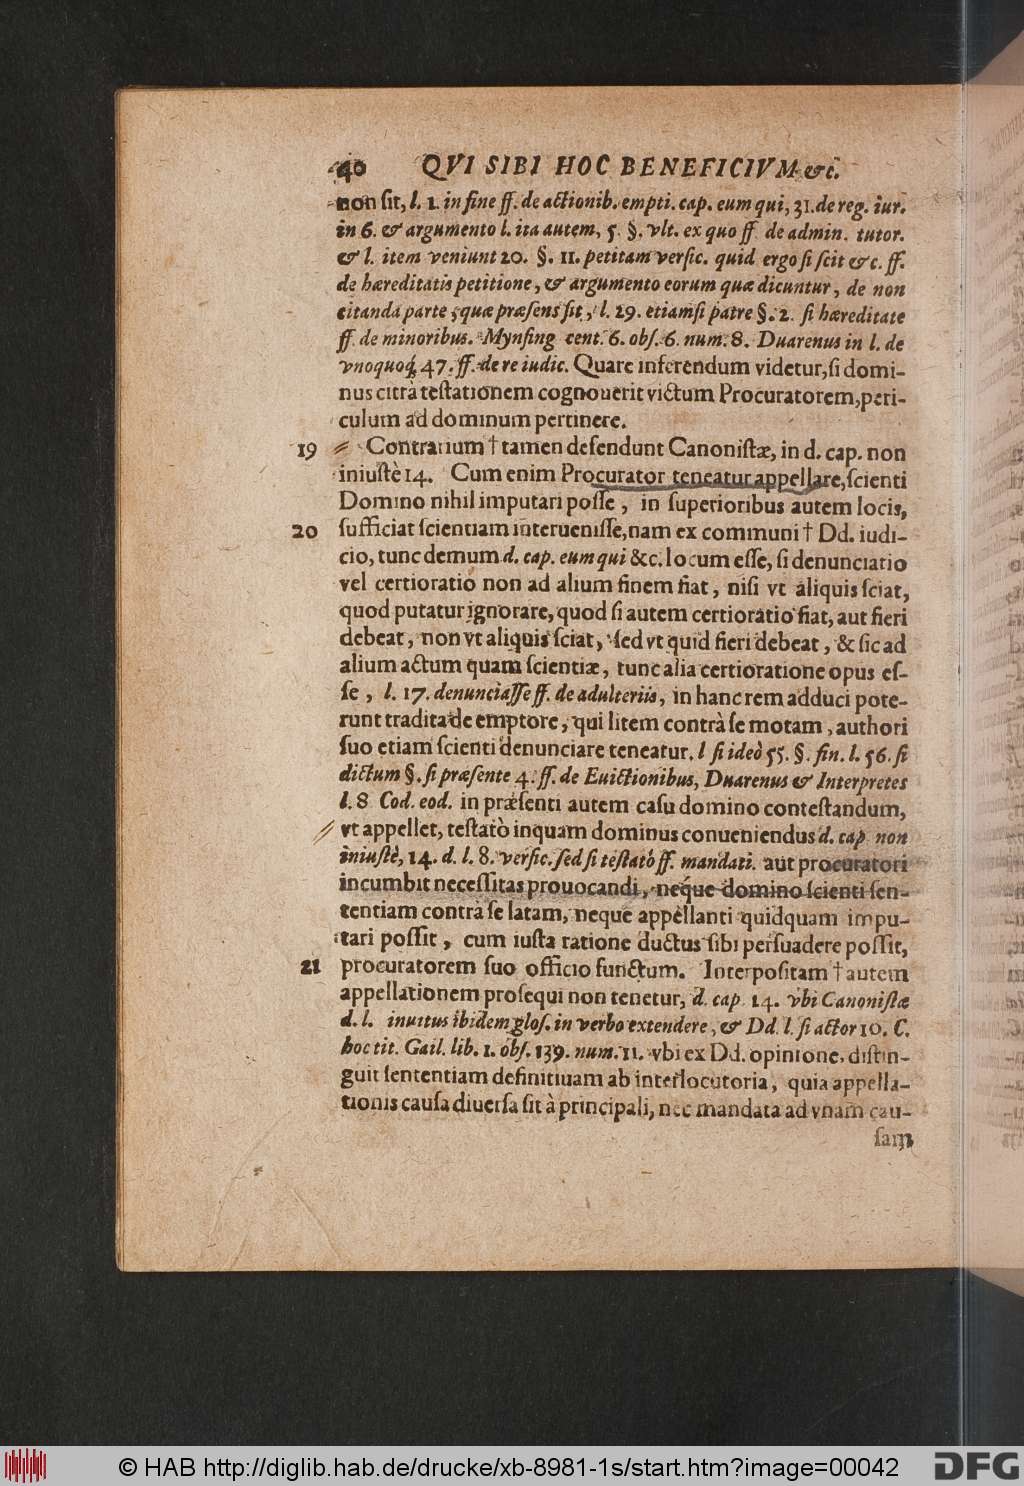 40 QVI SIBI HOC BENEFICIVM &c.
non ſit, l. 1. in fine ff. de actionib. empti. cap. eum qui, 31. de reg. iur.
in 6. & argumento l. ita autem, 5. §. vlt. ex quo ff. de admin. tutor.
& l. item veniunt 20. §. 11. petitam verſic. quid ergo ſi ſcit &c. ff.
de hæreditatis petitione, & argumento eorum quæ dicuntur, de non
citanda parte quæ præſens ſit, l. 29. etiamſi patre §. 2. ſi hæreditate
ff. de minoribus. Mynſing cent. 6. obſ. 6. num. 8. Duarenus in l. de
vnoquoq́, 47. ff. de re iudic. Quare inferendum videtur, ſi domi-
nus citrà teſtationem cognouerit victum Procuratorem, peri-
culum ad dominum pertinere.
19 Contrarium † tamen defendunt Canoniſtæ, in d. cap. non
iniuſtè 14. Cum enim Procurator teneatur appellare, ſcienti
Domino nihil imputari poſſe, in ſuperioribus autem locis,
20 ſufficiat ſcientiam interueniſſe, nam ex communi † Dd. iudi-
cio, tunc demum d. cap. eum qui &c. locum eſſe, ſi denunciatio
vel certioratio non ad alium finem fiat, niſi vt aliquis ſciat,
quod putatur ignorare, quod ſi autem certioratio fiat, aut fieri
debeat, non vt aliquis ſciat, ſed vt quid fieri debeat, & ſic ad
alium actum quam ſcientiæ, tunc alia certioratione opus eſ-
ſe, l. 17. denunciaſſe ff. de adulteriis, in hanc rem adduci pote-
runt tradita de emptore, qui litem contrà ſe motam, authori
ſuo etiam ſcienti denunciare teneatur. l ſi ideò 55. §. fin. l. 56. ſi
dictum §. ſi præſente 4. ff. de Euictionibus, Duarenus & Interpretes
l. 8 Cod. eod. in præſenti autem caſu domino conteſtandum,
vt appellet, teſtatò inquam dominus conueniendus d. cap non
iniuſtè, 14. d. l. 8. verſic. ſed ſi teſtatò ff. mandati. aut procuratori
incumbit neceſſitas prouocandi, neque domino ſcienti ſen-
tentiam contrà ſe latam, neque appellanti quidquam impu-
tari poſſit, cum iuſta ratione ductus ſibi perſuadere poſſit,
21 procuratorem ſuo officio functum. Interpoſitam † autem
appellationem proſequi non tenetur, d. cap. 14. vbi Canoniſtæ
d. l. inuitus ibidem gloſ. in verbo extendere, & Dd. l. ſi actor 10. C.
hoc tit. Gail. lib. 1. obſ. 139. num. 11. vbi ex Dd. opinione, diſtin-
guit ſententiam definitiuam ab interlocutoria, quia appella-
tionis cauſa diuerſa ſit à principali, nec mandata ad vnam cau-
ſam
© HAB http://diglib.hab.de/drucke/xb-8981-1s/start.htm?image=00042
DFG